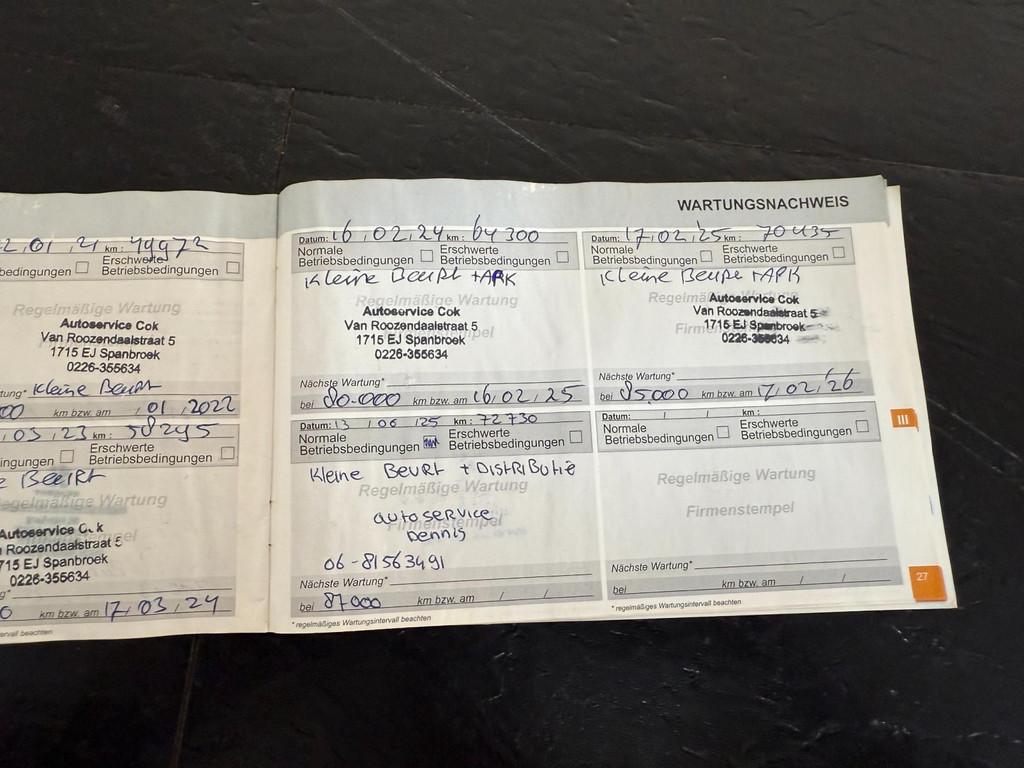 WARTUNGSNACHWEIS
01, 21 km: 49972
bedingungen Erschwerte
Betriebsbedingungen
Regelmäßige Wartung
Autoservice Cok
Van Roozendaalstraat 5
1715 EJ Spanbroek
0226-355634
Kleine Beurt
km bzw. am 01, 2022
03, 23 km: 58295
Erschwerte
ingungen Betriebsbedingungen
Beurt
egelmäßige Wartung
Autoservice
Roozendaalstraat 5
715 EJ Spanbroek
0226-355634
km bzw. am 17, 03, 24
ervall beachten
Datum: 16, 02, 24 km: 64300
Normale Erschwerte
Betriebsbedingungen Betriebsbedingungen
Kleine Beurt + APK
Regelmäßige Wartung
Autoservice Cok
Van Roozendaalstraat 5
1715 EJ Spanbroek
0226-355634
Nächste Wartung*
bei 80.000 km bzw. am 16, 02, 25
Datum: 17, 02, 25 km: 70435
Normale Erschwerte
Betriebsbedingungen Betriebsbedingungen
Kleine Beurt + APK
Autoservice Cok
Van Roozendaalstraat 5
1715 EJ Spanbroek
0226-355634
Nächste Wartung*
bei 85.000 km bzw. am 17, 02, 26
Datum: 13 / 06 / 25 km: 72730
Normale Erschwerte
Betriebsbedingungen Betriebsbedingungen
Kleine Beurt + Distributie
Regelmäßige Wartung
autoservice
Firmenstempel
Dennis
06-81563491
Nächste Wartung*
bei 87000 km bzw. am / /
* regelmäßiges Wartungsintervall beachten
Datum: / / km:
Normale Erschwerte
Betriebsbedingungen Betriebsbedingungen
Regelmäßige Wartung
Firmenstempel
Nächste Wartung*
bei km bzw. am / /
* regelmäßiges Wartungsintervall beachten
III
27